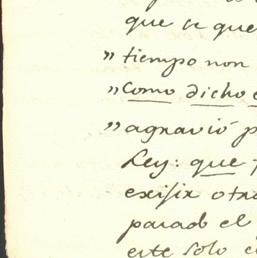 que se que
„ tiempo non
„ como dicho e
„ agravió p
Ley: que
existir otra
parado el
este solo